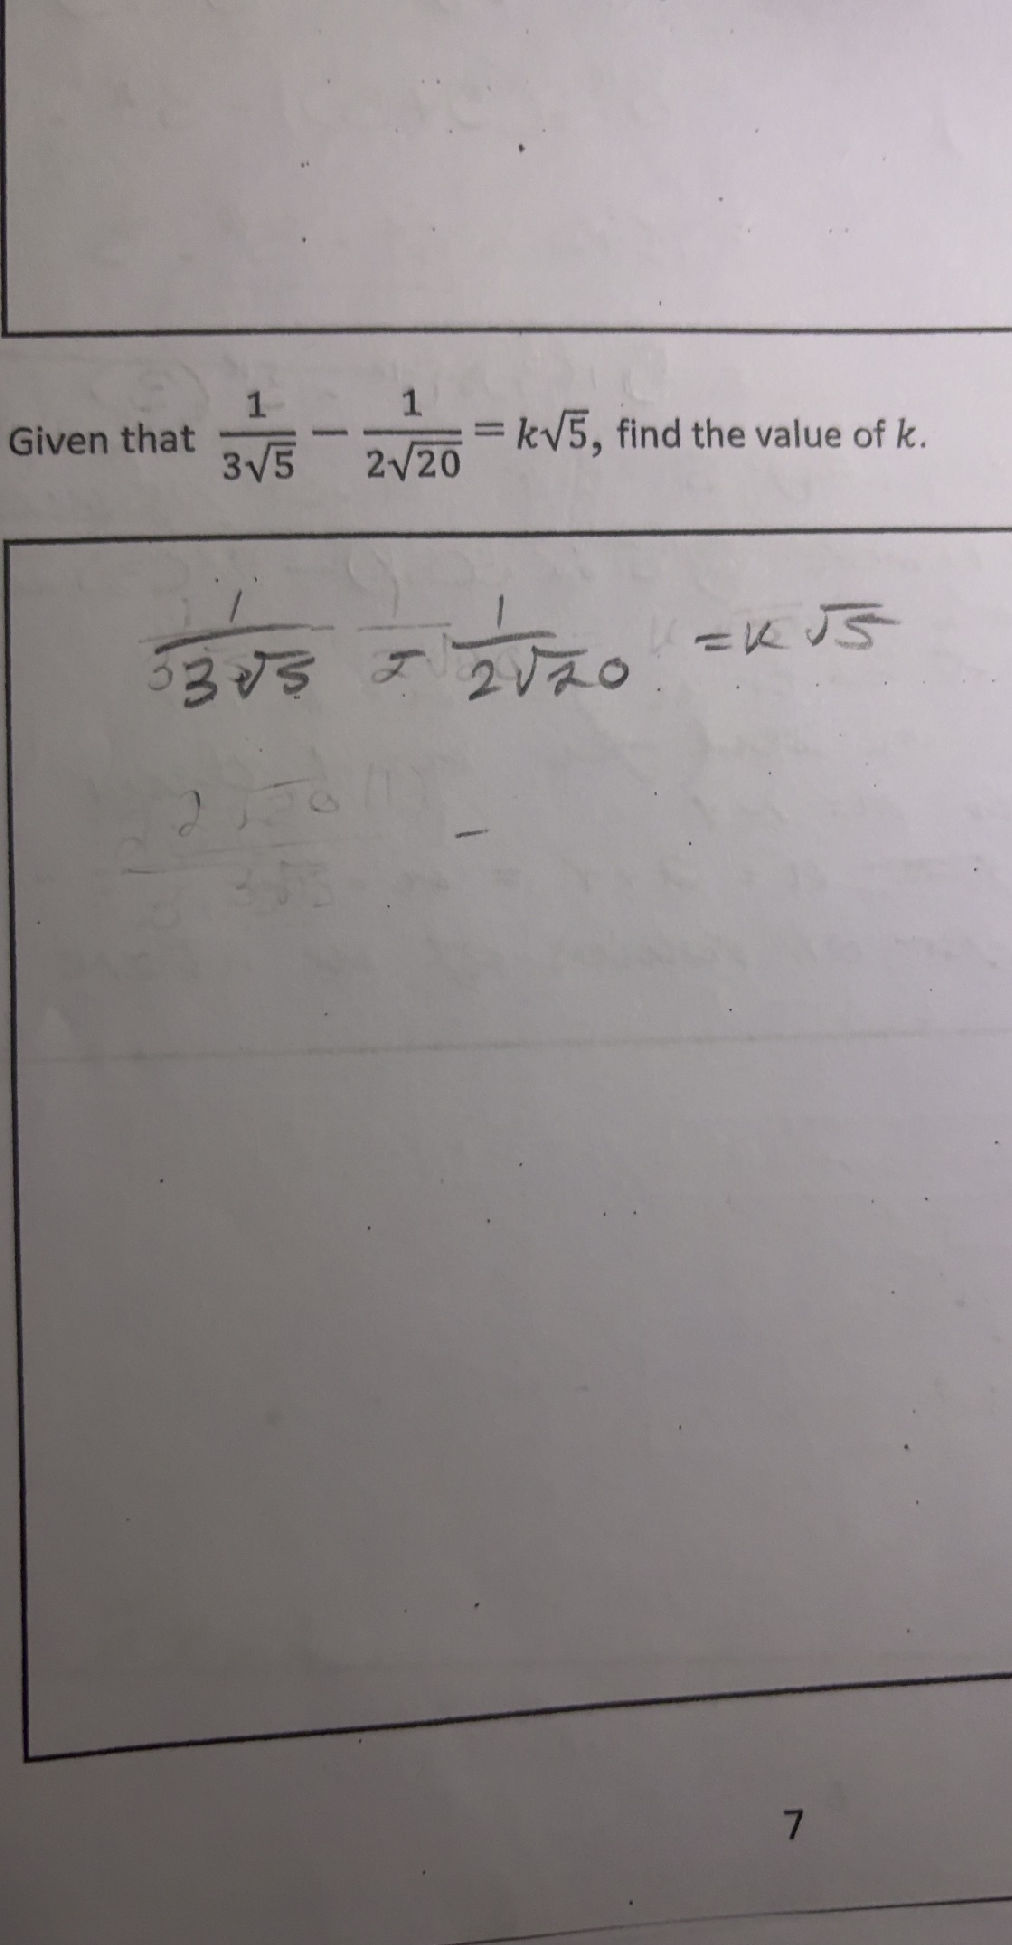 Given that 1/(3√5) − 1/(2√20) = k√5, find the value of k.
1/(3√5) - 1/(2√20) = k√5
2√20
3√5
−
7